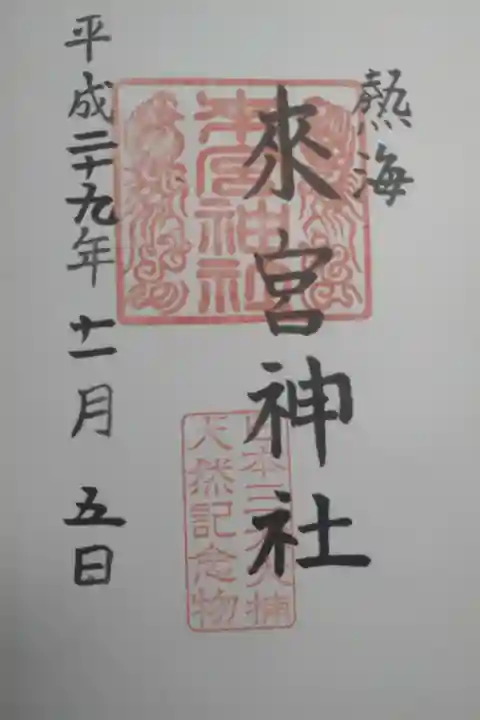 熱海
來宮神社
平成二十九年 十一月 五日
来宮神社
日本三大大楠
天然記念物